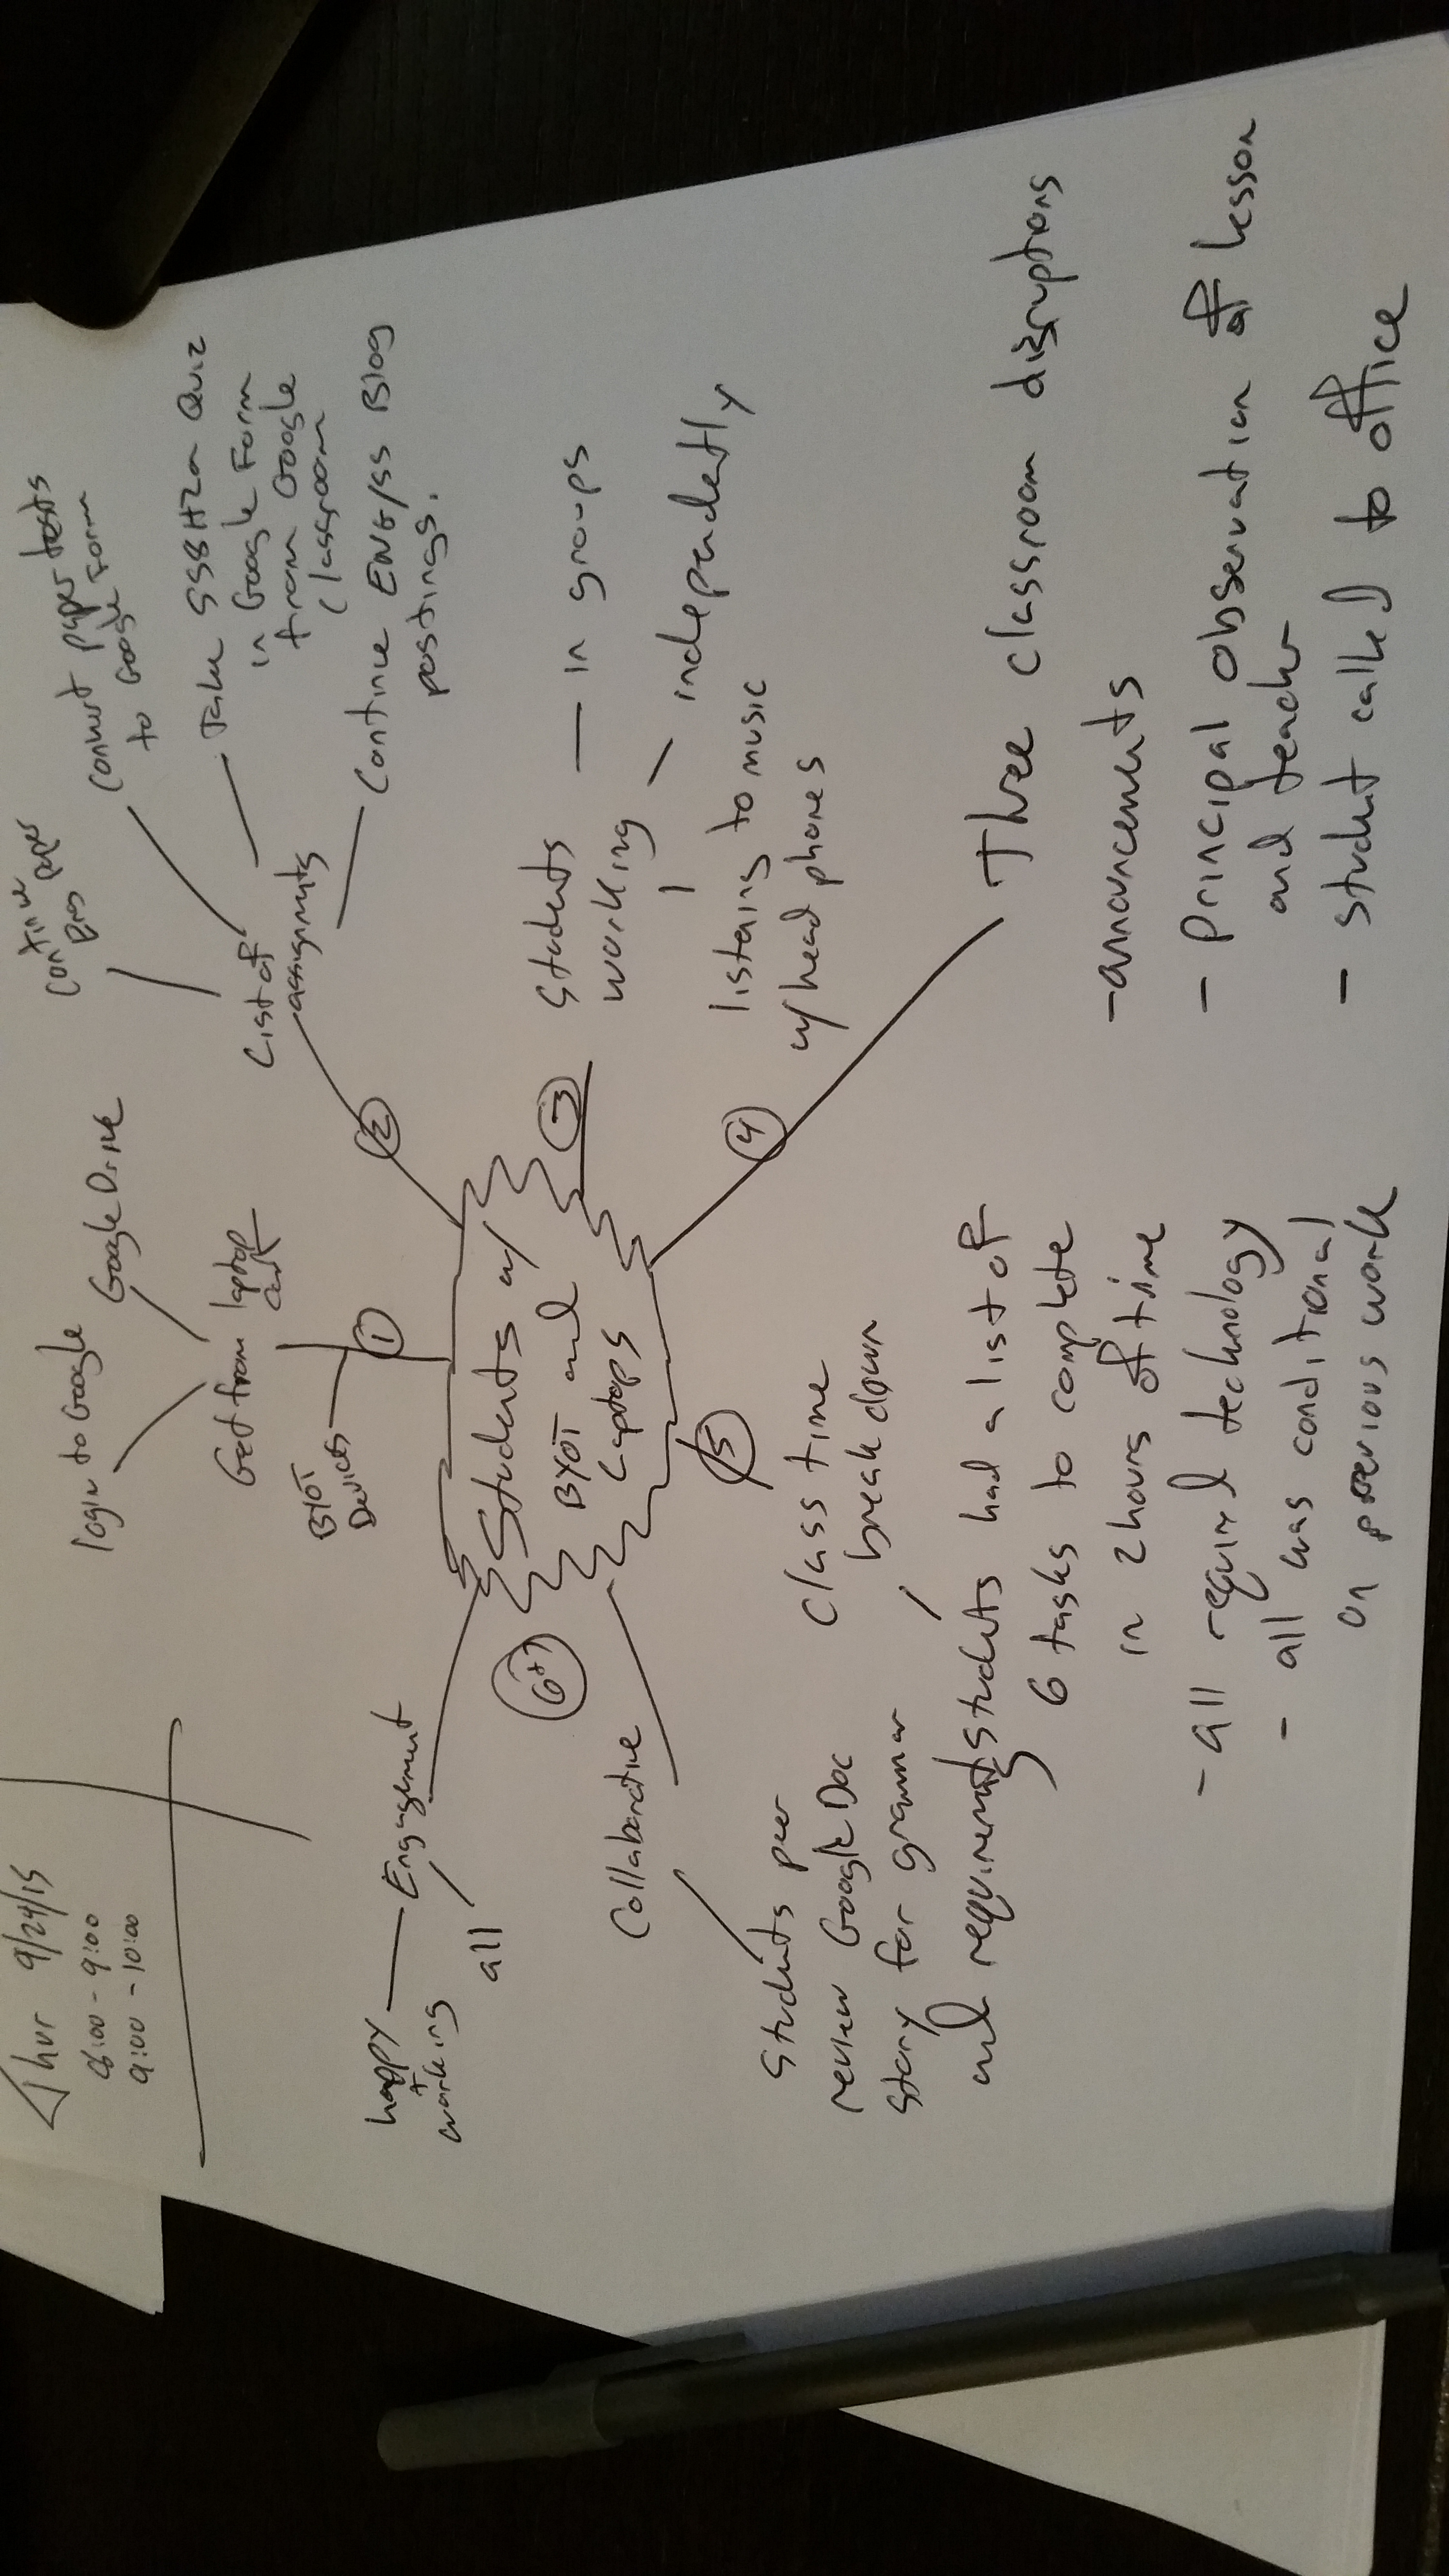 Thur 9/24/15
8:00 - 9:00
9:00 - 10:00
Students w/
BYOT and
Laptops
①
BYOT
Devices
Get from laptop
cart
login to Google
Google Drive
②
List of
assignments
Continue
paper
Convert paper tests
to Google Form
Take SS8H2a Quiz
in Google Form
from Google
Classroom
Continue ENG/SS Blog
postings.
③
Students
working
— in groups
— independently
listening to music
w/ head phones
④
Three classroom disruptions
- announcements
- principal observation of lesson
and teacher
- student called to office
⑤
class time
break down
students had a list of
6 tasks to complete
in 2 hours of time
- all required technology
- all was conditional
on previous work
6
Engagement
happy
+
working
all
Collaborative
Students peer
review Google Doc
story for grammar
and requirements